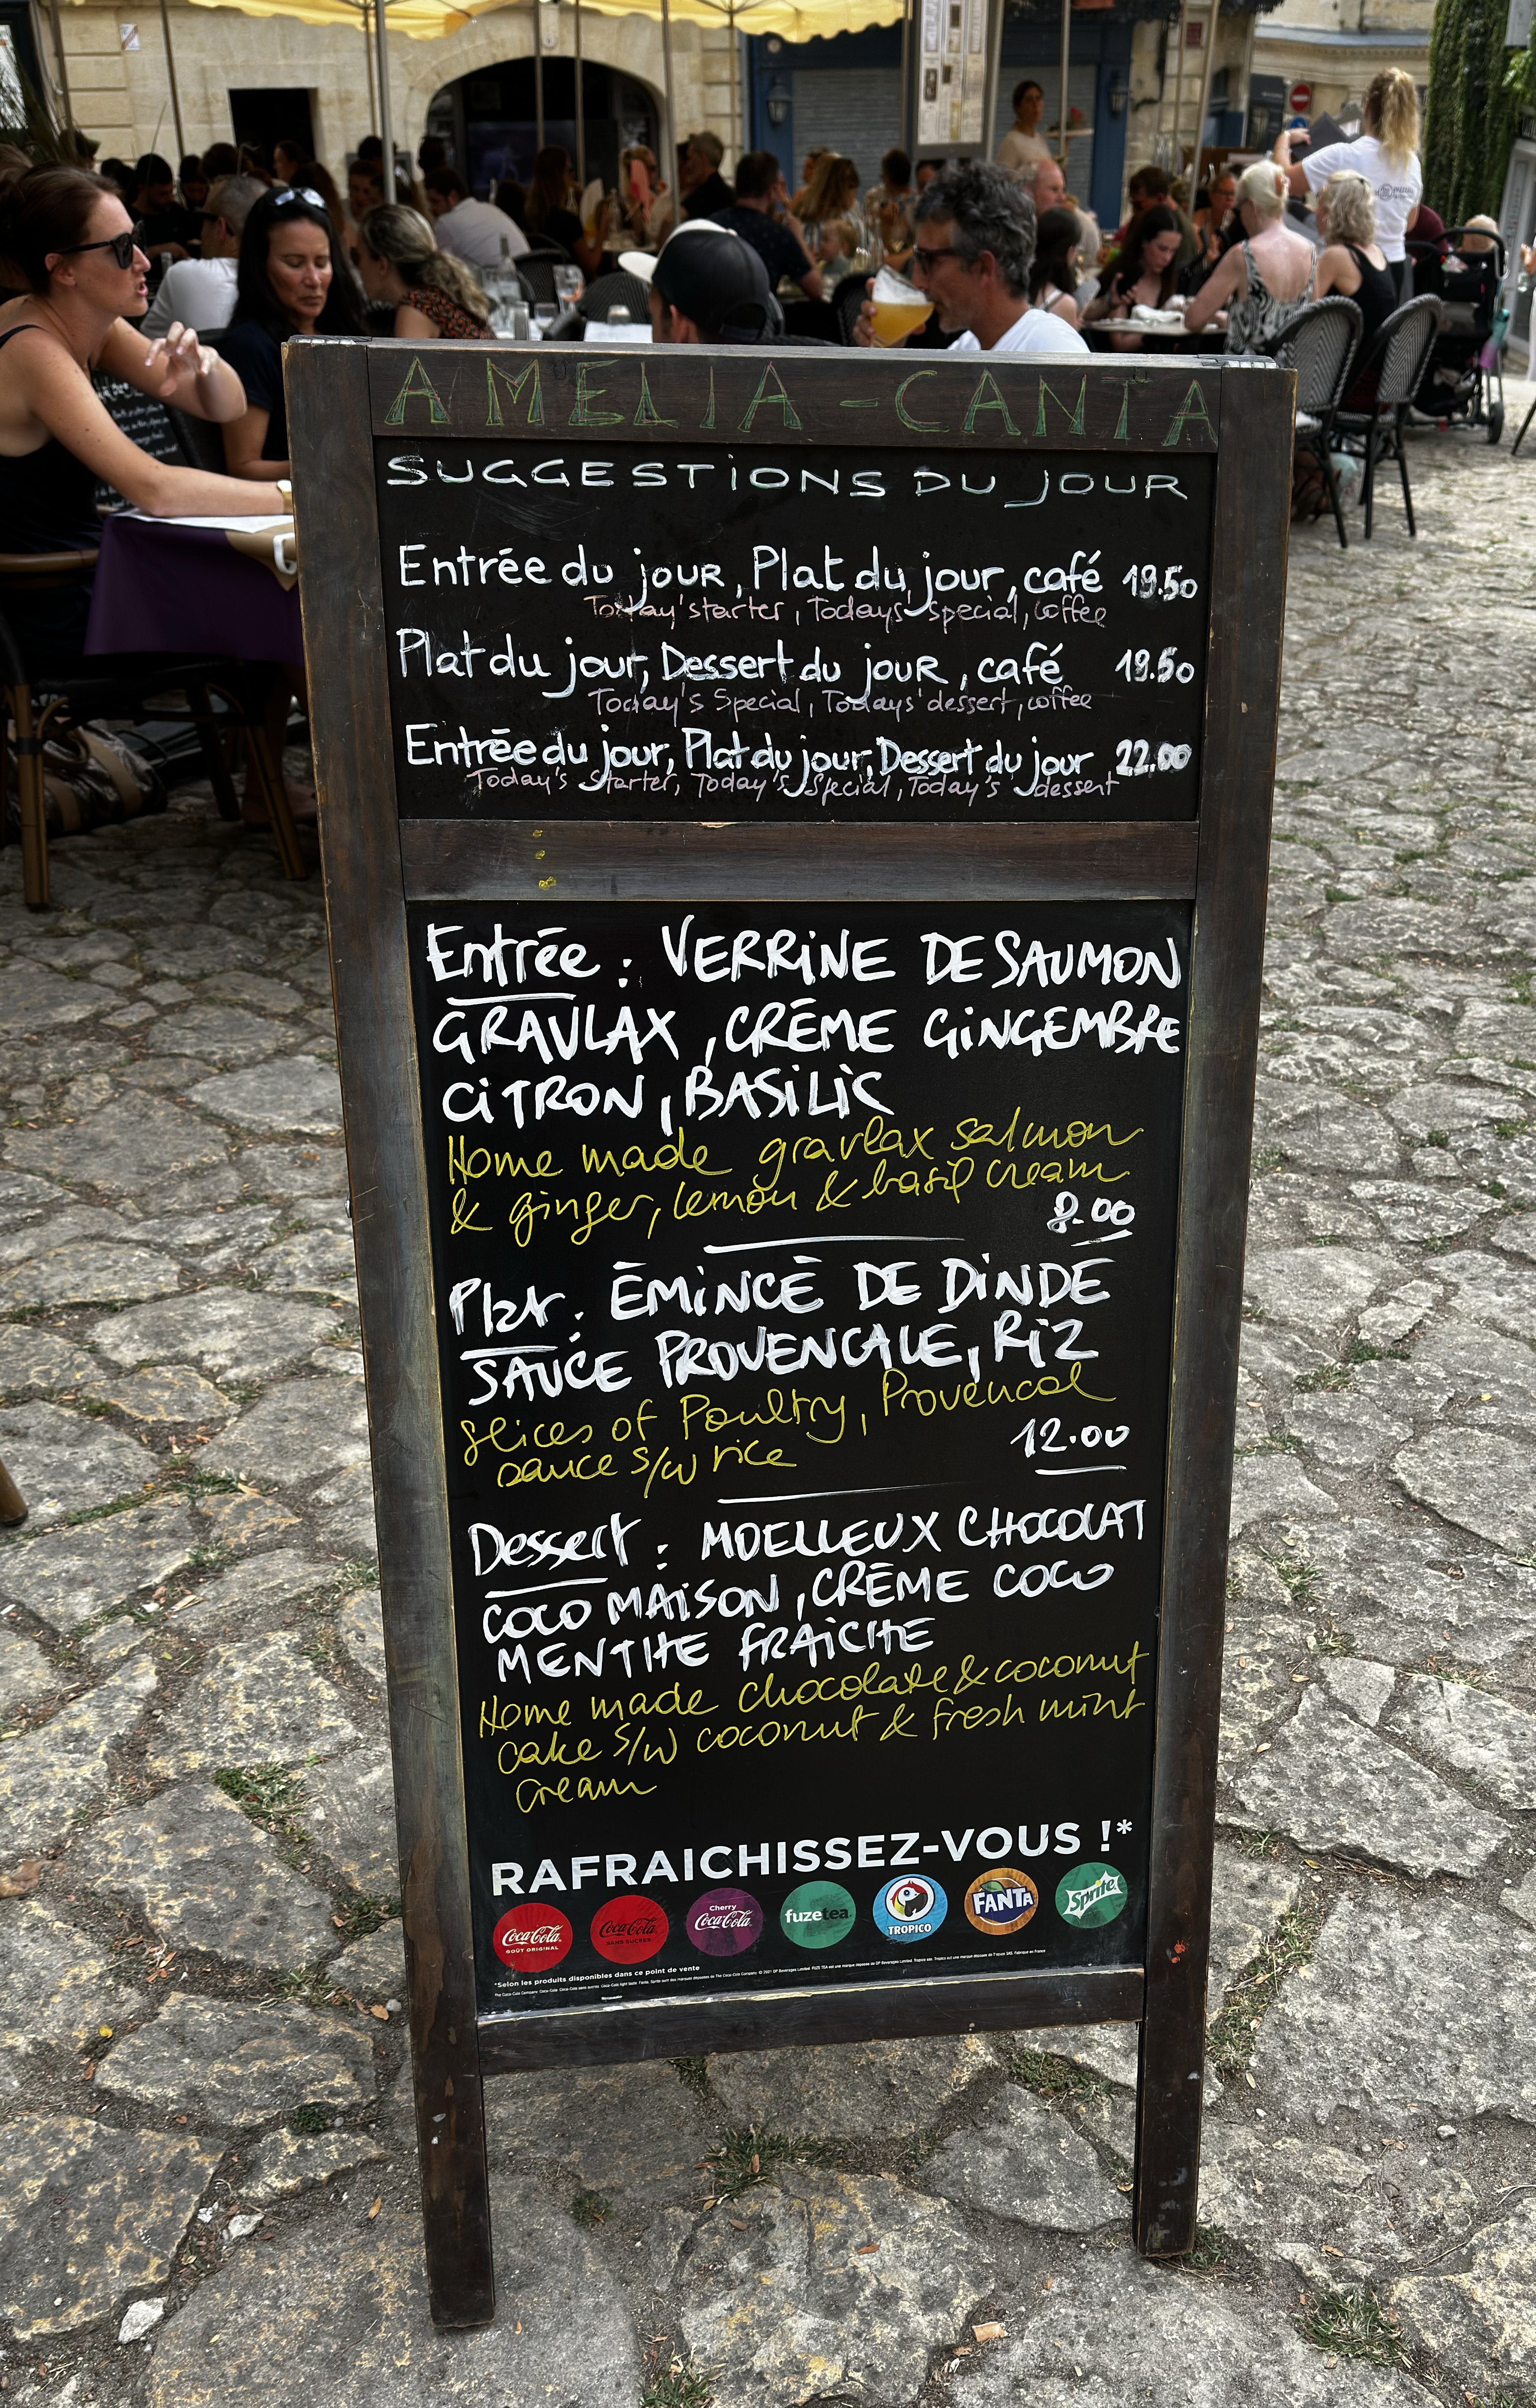 AMELIA - CANTA
SUGGESTIONS DU JOUR
Entrée du jour, Plat du jour, café 19.50
Today'starter, Todays' special, coffee
Plat du jour, Dessert du jour, café 19.50
Today's Special, Todays' dessert, coffee
Entrée du jour, Plat du jour, Dessert du jour 22.00
Today's Starter, Today's Special, Today's dessert
Entrée : VERRINE DE SAUMON
GRAVLAX, CRÈME GINGEMBRE
CITRON, BASILIC
Home made gravlax salmon
& ginger, lemon & basil cream
8.00
Plat : ÉMINCÉ DE DINDE
SAUCE PROVENCALE, RIZ
slices of Poultry, Provencal
sauce s/w rice
12.00
Dessert : MOELLEUX CHOCOLAT
COCO MAISON, CRÈME COCO
MENTHE FRAICHE
Home made chocolate & coconut
cake s/w coconut & fresh mint
cream
RAFRAICHISSEZ-VOUS !*
Coca-Cola GOÛT ORIGINAL
Coca-Cola SANS SUCRES
Cherry Coca-Cola
fuzetea
TROPICO
FANTA
Sprite
*Selon les produits disponibles dans ce point de vente